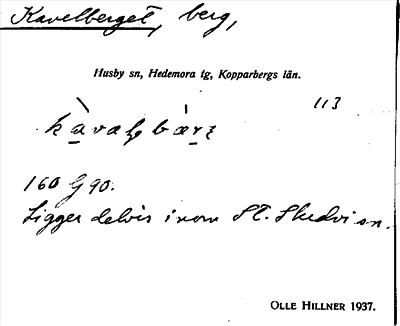 Kavelberget, berg,
Husby sn, Hedemora tg, Kopparbergs län.
113
160 G 90.
Ligger delvis inom St. Skedvi sn.
OLLE HILLNER 1937.